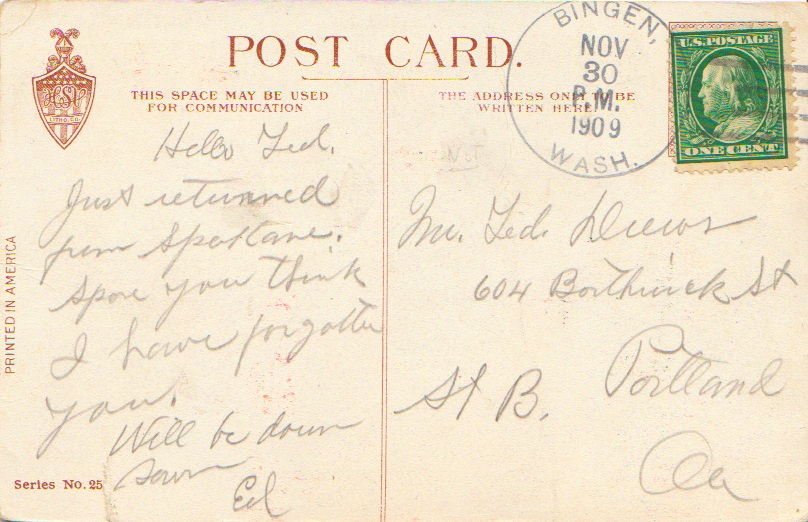 POST CARD.
THIS SPACE MAY BE USED
FOR COMMUNICATION
THE ADDRESS ONLY TO BE
WRITTEN HERE
BINGEN,
NOV
30
P.M.
1909
WASH.
U.S. POSTAGE
ONE CENT
HSV
LITHO. CO.
Hello Ted.
Just returned
from Spokane.
Spose you think
I have forgotten
you.
Will be down
soon
Ed
Not
Mr. Ted. Drews
604 Borthwick St
St B.
Portland
Ore
PRINTED IN AMERICA
Series No. 25